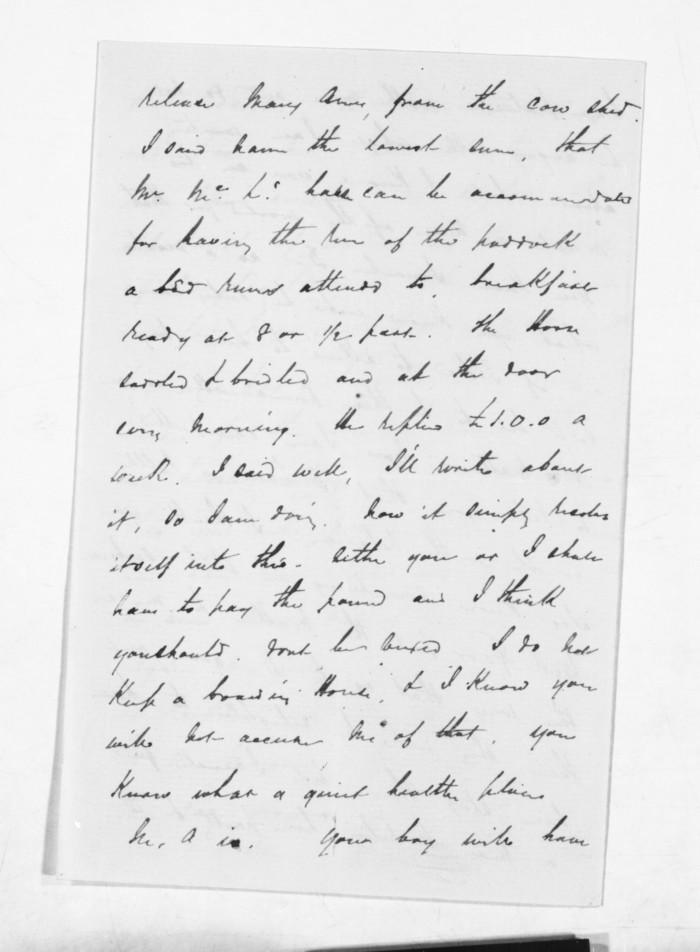 release Mary Ann, from the cow shed.
I said name the lowest sum, that
Mr. McL's can be accommodated
for having the run of the paddock
a bed room attended to. breakfast
ready at 8 or 1/2 past. The Horse
saddled & bridled and at the door
every morning. He replied £1.0.0 a
week. I said well, I'll write about
it, so I am doing. now it simply resolves
itself into this. either you or I shall
have to pay the pound and I think
you should. dont be I do not
Keep a boarding House, & I Know you
will not accuse Me of that. you
Know what a quiet healthy place
M. A is. Your boy will have